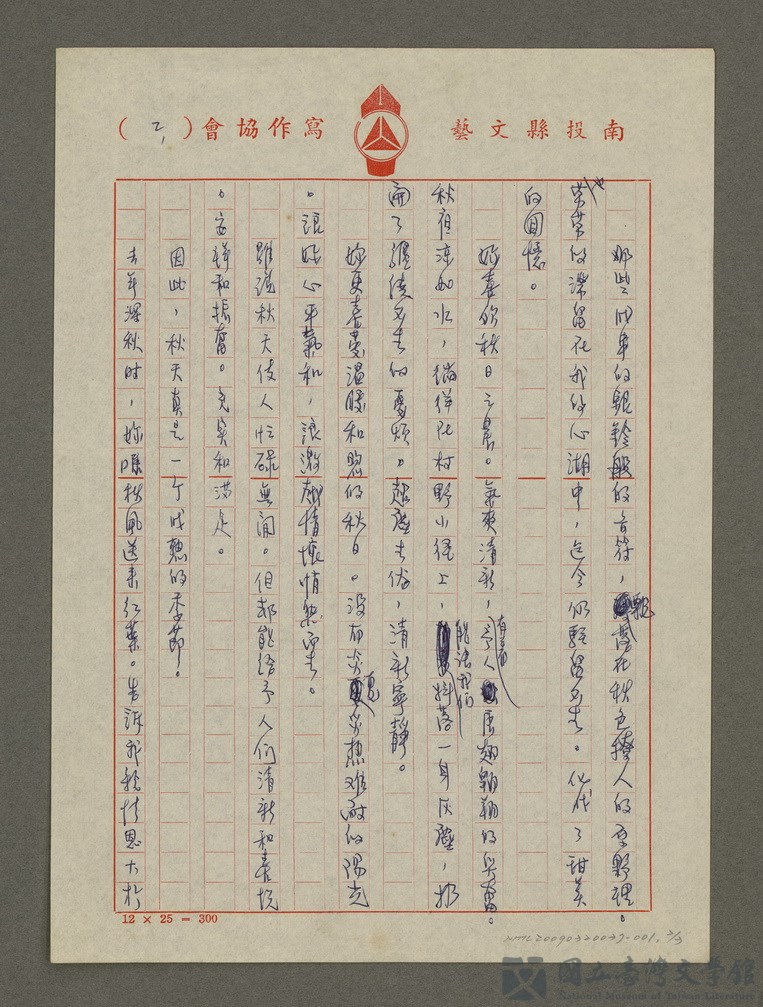 南投縣文藝寫作協會（2,）
那些成串的銀鈴般的音符，飄落在秋色撩人的原野裡。
也縈縈的深留在我的心湖中，迄今仍輕留不去。化成了甜美
的回憶。
妳喜歡秋日之晨。氣爽清新，予人有着展翅翱翔的興奮。
秋夜涼如水，徜徉在村野小徑上，能讓我們抖落一身灰塵，拋
開了纏繞不去的憂煩。超塵去俗，清新寧靜。
妳更喜愛溫暖和煦的秋日。沒有炎夏炎熱難耐的陽光
。讓妳心平氣和，讓激越情懷悄然而去。
雖說秋天使人忙碌無閒。但却能給予人們清新和喜悅
。安祥和振奮。充實和滿足。
因此，秋天真是一个成熟的季節。
去年深秋時，妳囑秋風送來紅葉。告訴我秋情思大於
12 × 25 = 300
NMTL20090320037-001, 2/3
國立臺灣文學館
National Museum of Taiwan Literature